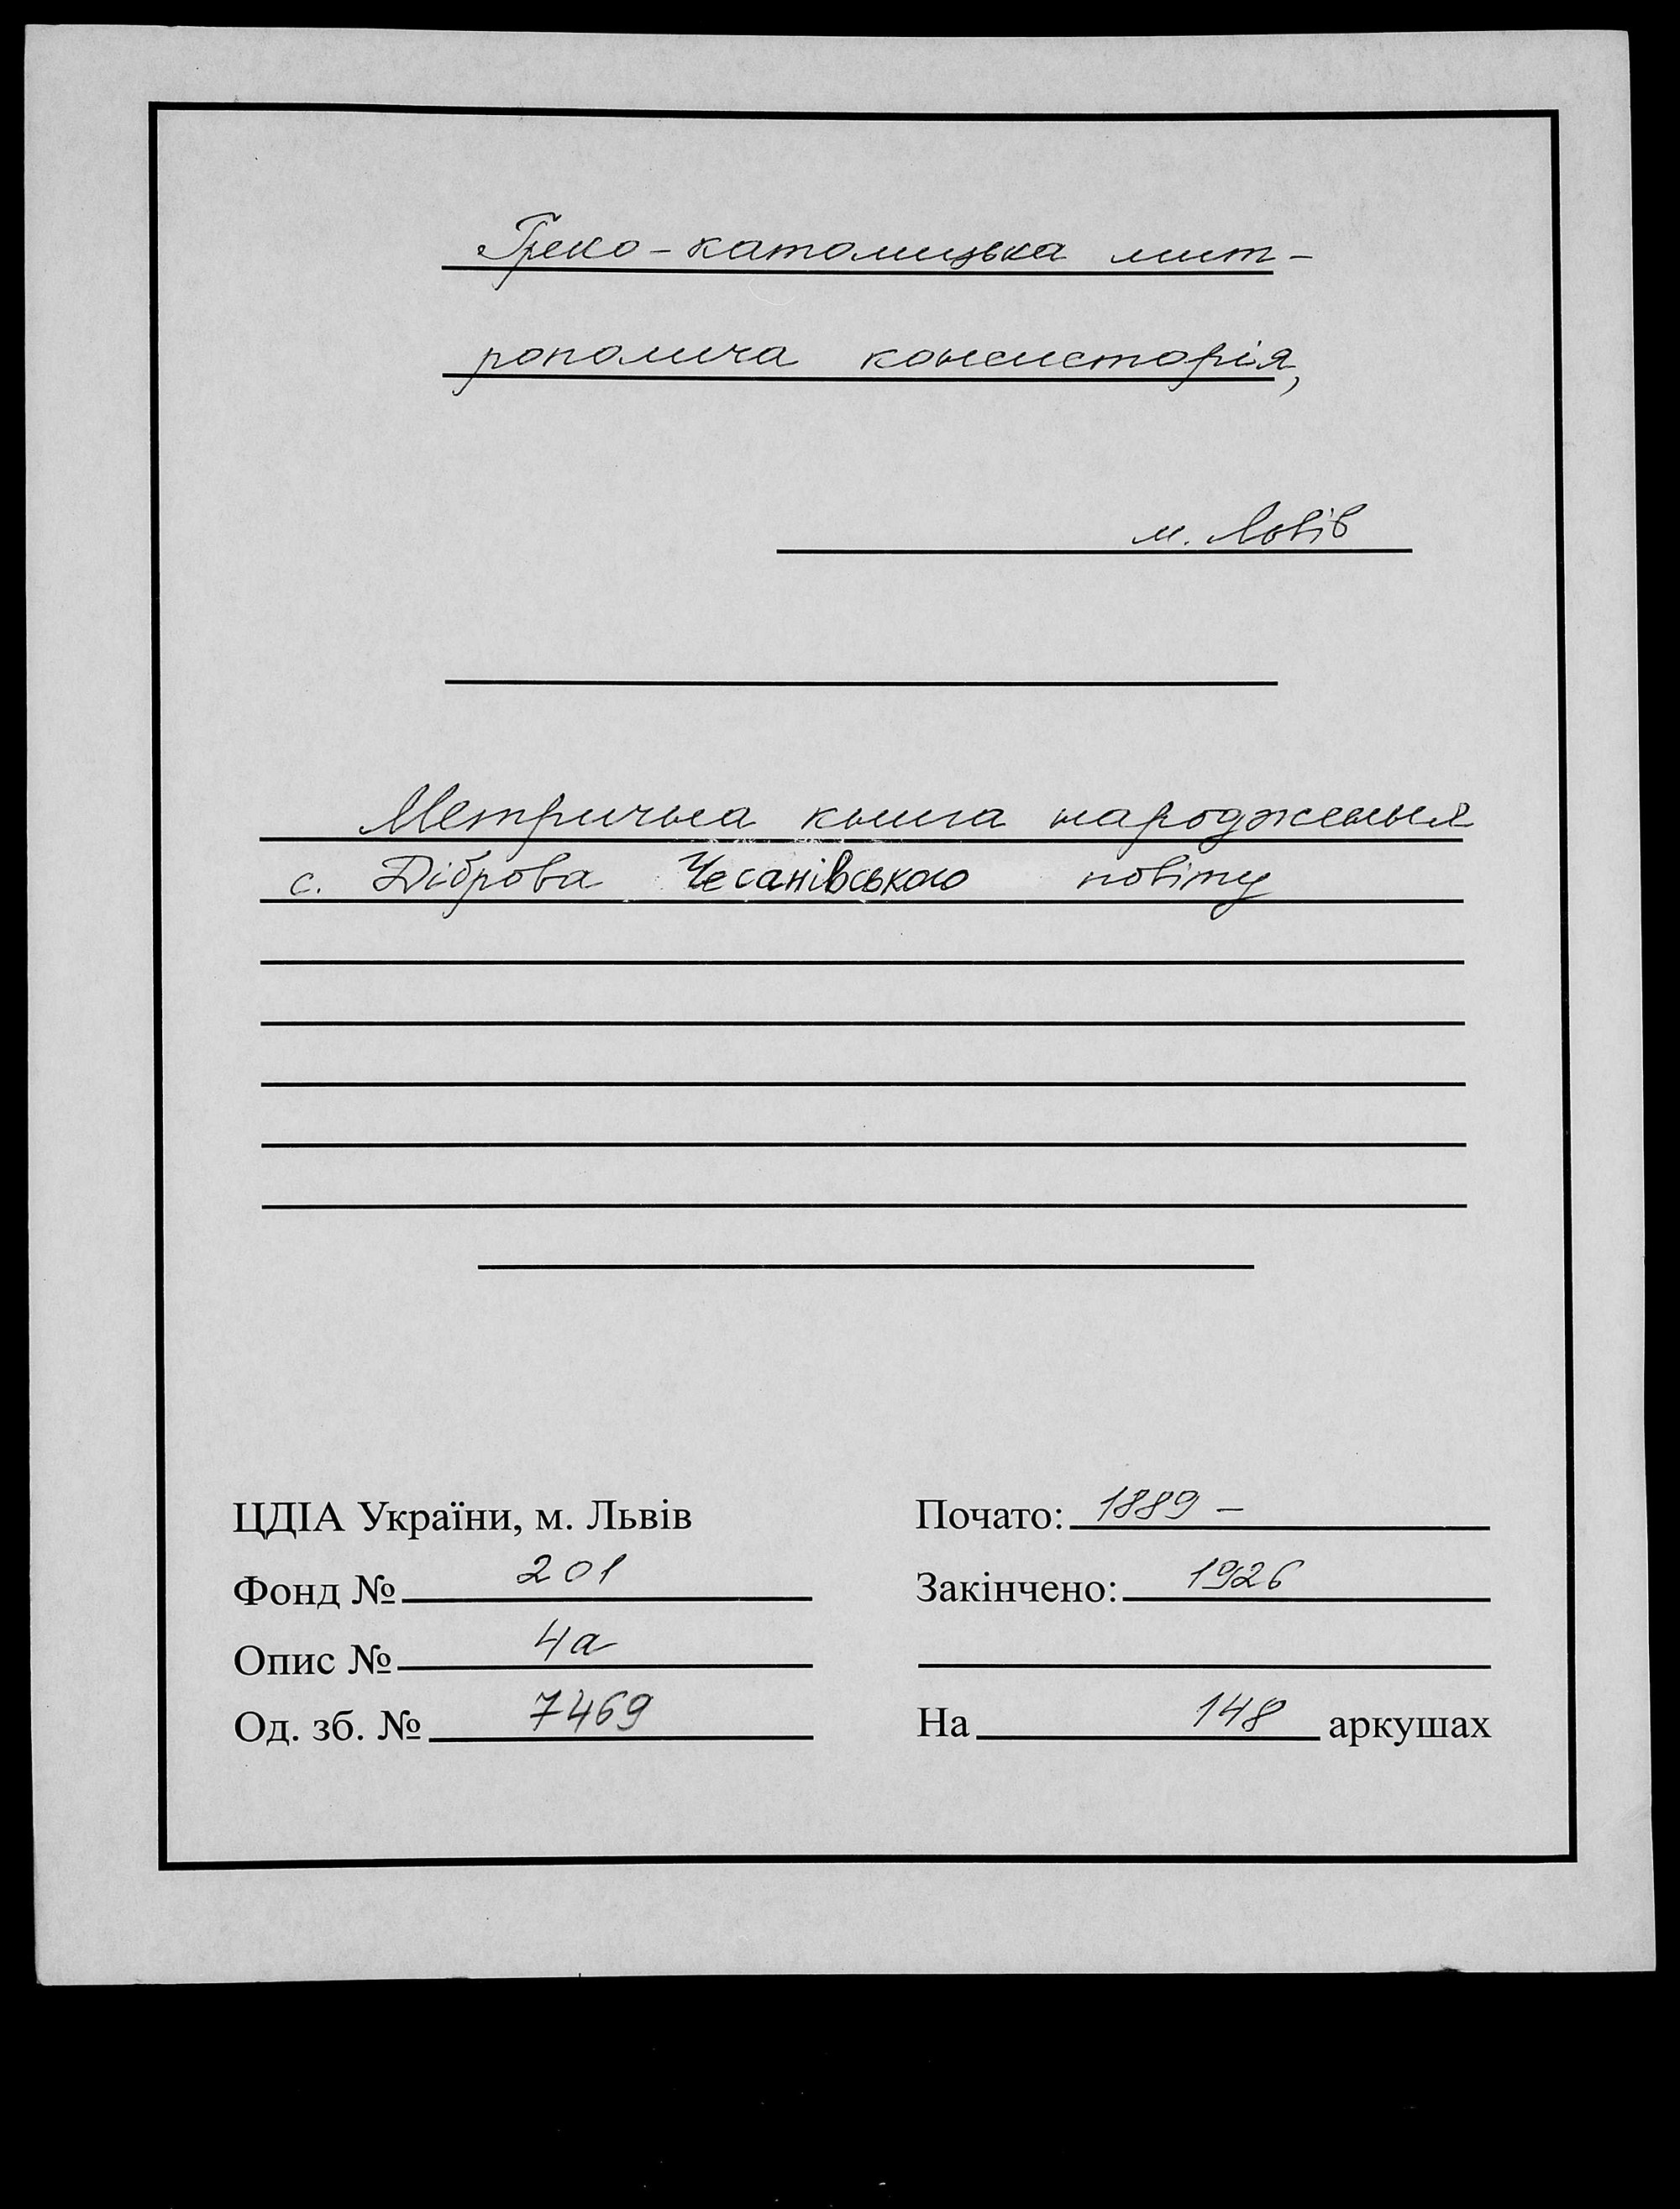 Греко-католицька мит-
рополича консисторія,
м. Львів
Метрична книга народження
с. Діброва Чесанівського повіту
ЦДІА України, м. Львів
Фонд № 201
Опис № 4а
Од. зб. № 7469
Почато: 1889 –
Закінчено: 1926
На 148 аркушах